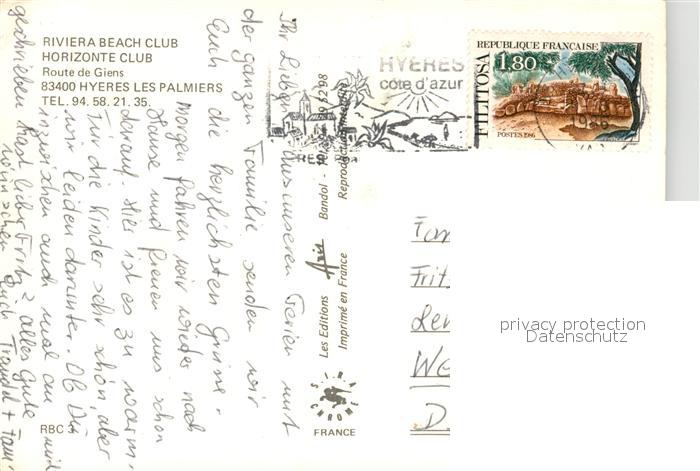 RIVIERA BEACH CLUB
HORIZONTE CLUB
Route de Giens
83400 HYERES LES PALMIERS
TEL. 94. 58. 21. 35.
Ihr Lieben! Aus unseren Ferien mit
der ganzen Familie senden wir
Euch die herzlichsten Grüsse.
Morgen fahren wir wieder nach
Hause und freuen uns schon
darauf. Hier ist es zu warm,
Für die Kinder sehr schön, aber
wir leiden darunter. Ob Du
inzwischen auch mal an mich
geschrieben hast, lieber Fritz? alles Gute
wünschen Euch Traudl + Fam.
RBC 3
Les Editions
Bandol
Imprimé en France
FRANCE
HYERES
côte d'azur
REPUBLIQUE FRANÇAISE
1,80
FILITOSA
POSTES 1986
1986
Fam
Frit
We
D
privacy protection
Datenschutz